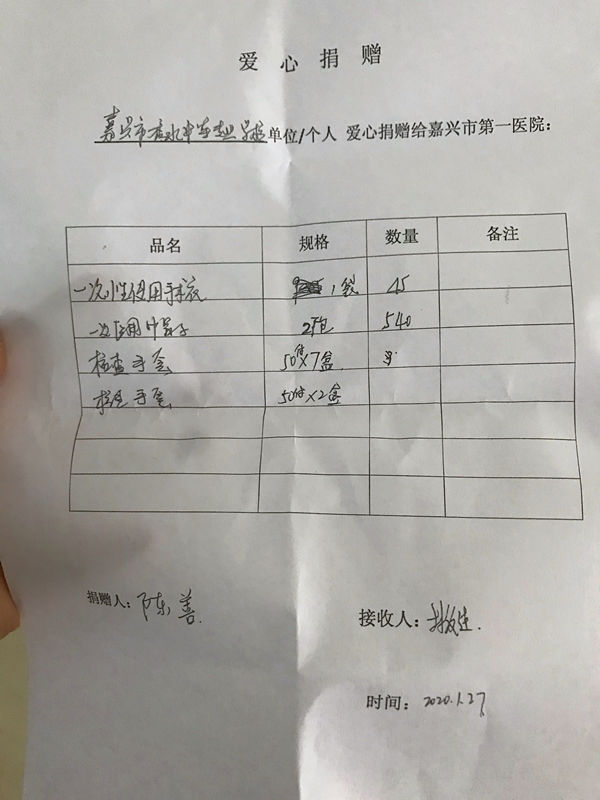 爱心捐赠
嘉兴市秀水中等专业学校单位/个人 爱心捐赠给嘉兴市第一医院：
品名 规格 数量 备注
一次性使用手术衣 1袋 45
一次性用 2只/包 540
检查手套 50付×7盒
检查手套 50付×2盒
捐赠人：陈善
接收人：
时间：2020.1.27